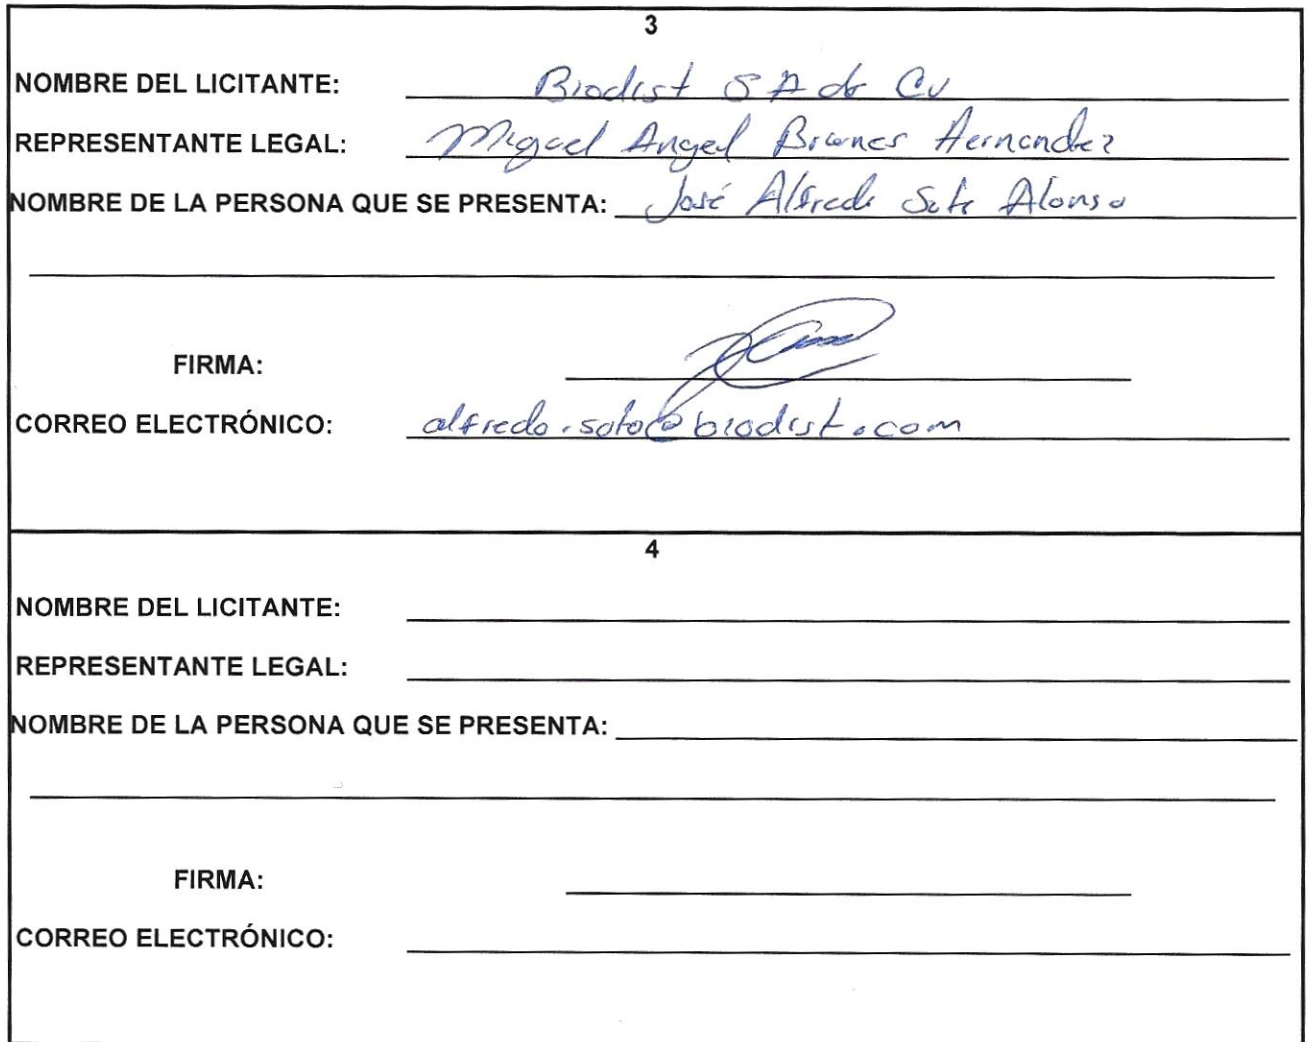 3
NOMBRE DEL LICITANTE: Biodist S A de Cv
REPRESENTANTE LEGAL: Miguel Angel Briones Hernandez
NOMBRE DE LA PERSONA QUE SE PRESENTA: José Alfredo Soto Alonso
FIRMA:
CORREO ELECTRÓNICO: alfredo.soto@biodist.com
4
NOMBRE DEL LICITANTE:
REPRESENTANTE LEGAL:
NOMBRE DE LA PERSONA QUE SE PRESENTA:
FIRMA:
CORREO ELECTRÓNICO: